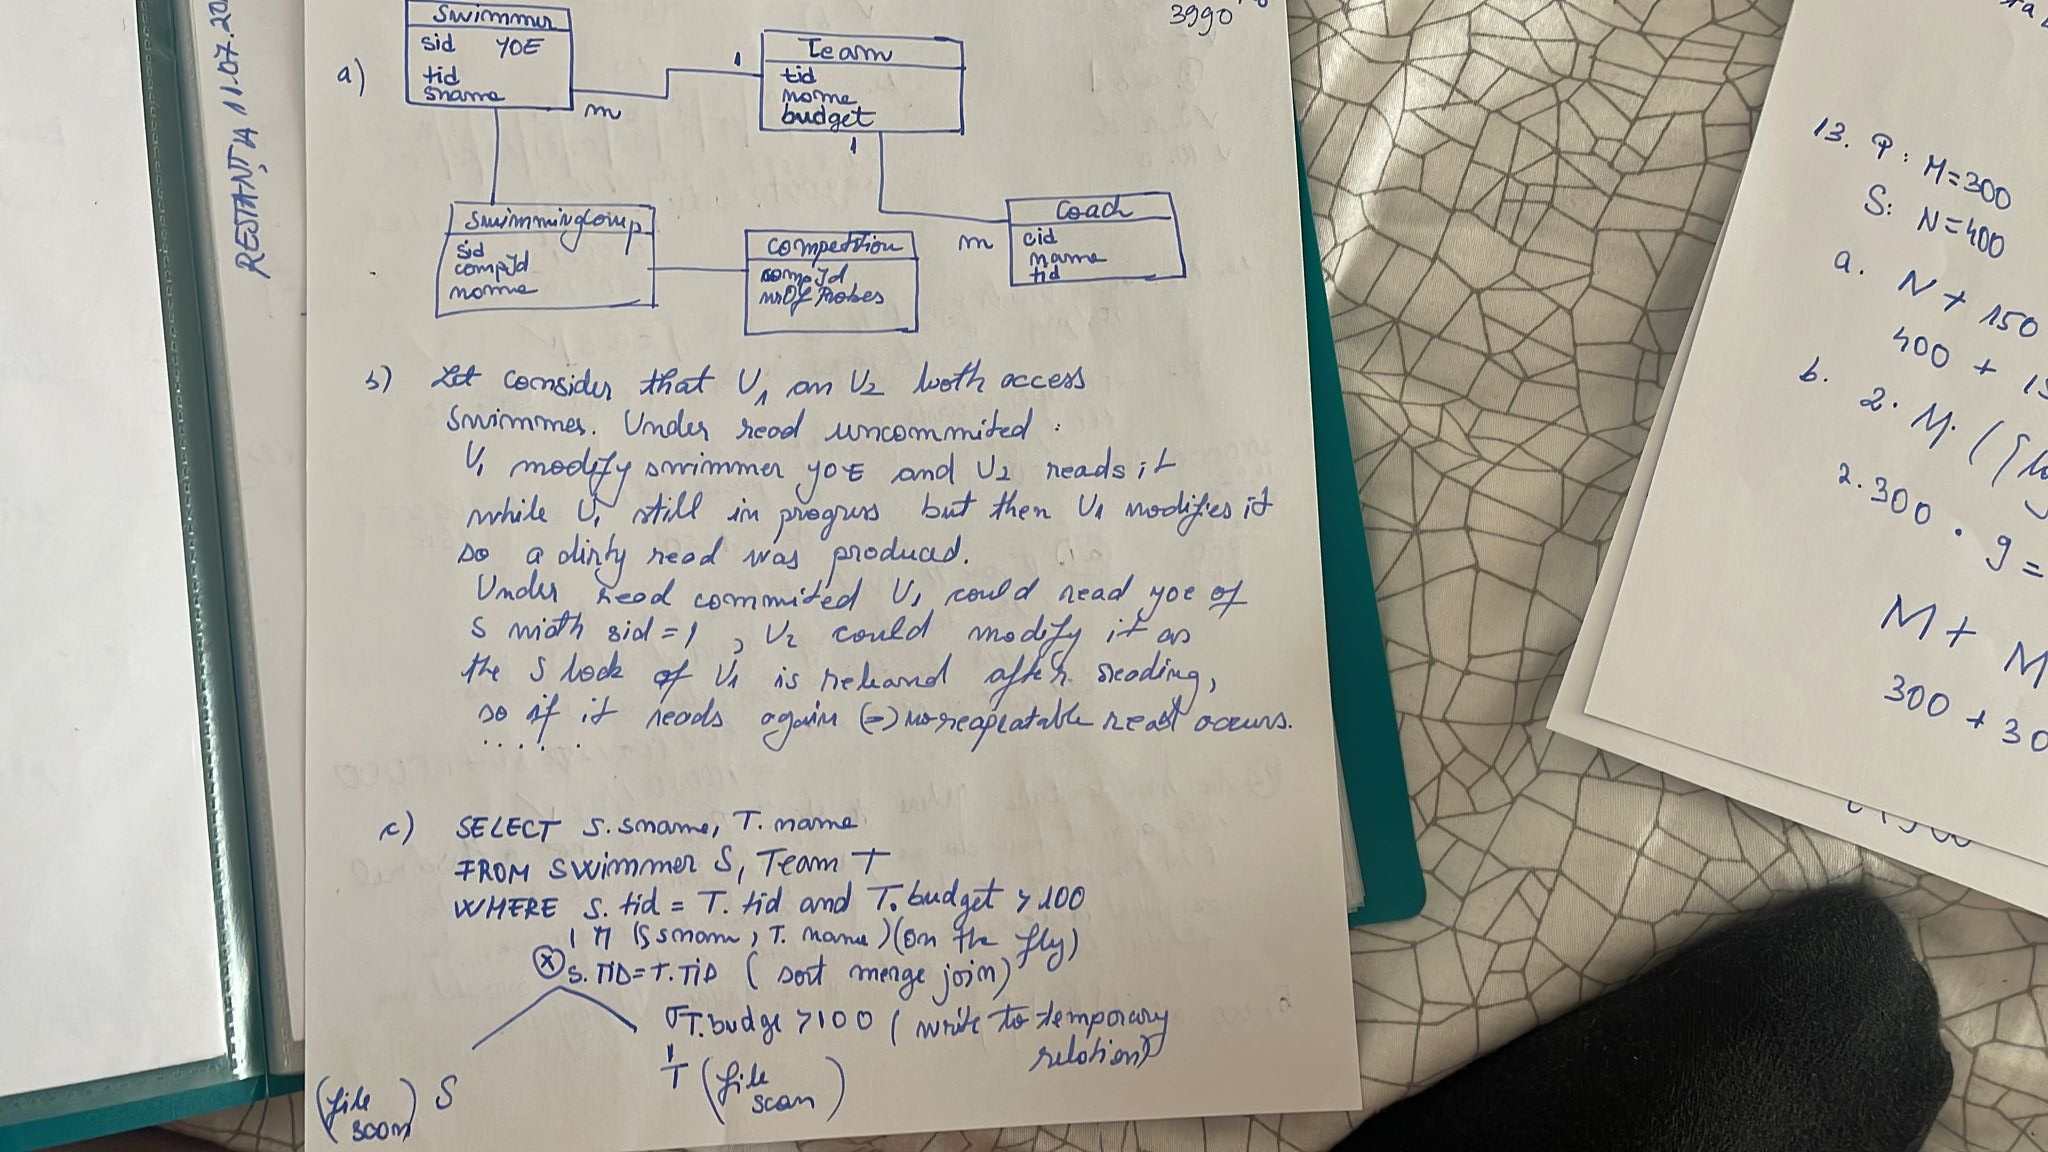 RESTANȚĂ 11.07.20
3990
a)
Swimmer
sid YOE
tid
sname
m
1
Team
tid
nome
budget
1
m
Coach
cid
name
tid
SwimmingComp
sid
compId
nome
competition
compId
nrOf Probes
b) Let consider that U1 an U2 both access
Swimmer. Under read uncommited :
U1 modify swimmer yoE and U2 reads it
while U1 still in progress but then U1 modifies it
so a dirty read was produced.
Under read commited U1 could read yoe of
S with sid = 1, U2 could modify it as
the S lock of U1 is released after reading,
so if it reads again (=) noreapeatable read occurs.
. . . . . .
c) SELECT S.sname, T.name
FROM Swimmer S, Team T
WHERE S.tid = T.tid and T.budget > 100
π (S sname, T.name) (on the fly)
⊗ S.TID = T.TID (sort merge join)
σ T.budge > 100 (write to temporary
relation)
T (file
scan)
(file
scan) S
13. P: M=300
S: N=400
a. N + 150
400 + 15
b. 2. M. (
2. 300 . 9 =
M + M
300 + 30